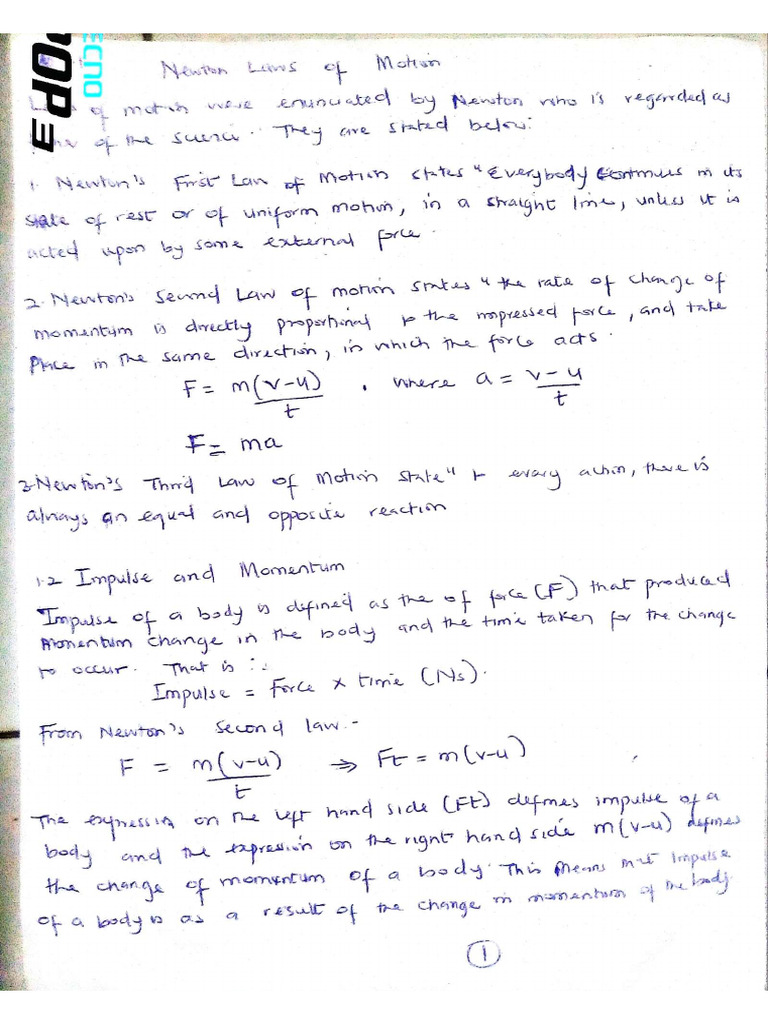 Newton Laws of Motion
of motion were enunciated by Newton who is regarded as
of the science. They are stated below:
1. Newton's First Law of Motion states "Everybody continues in its
state of rest or of uniform motion, in a straight line, unless it is
acted upon by some external force.
2. Newton's Second Law of motion states "the rate of change of
momentum is directly proportional to the impressed force, and take
Place in the same direction, in which the force acts.
F = m(v-u)/t , where a = v-u/t
F = ma
3. Newton's Third Law of Motion state" to every action, there is
always an equal and opposite reaction
1.2 Impulse and Momentum
Impulse of a body is defined as the of force (F) that produced
Momentum change in the body and the time taken for the change
to occur. That is :.
Impulse = Force × time (Ns).
From Newton's Second law:-
F = m(v-u)/t ⇒ Ft = m(v-u)
The expression on the left hand side (Ft) defines impulse of a
body and the expression on the right hand side m(v-u) defines
the change of momentum of a body. This means that Impulse
of a body is as a result of the change in momentum of the body.
1
TECNO
POP 3